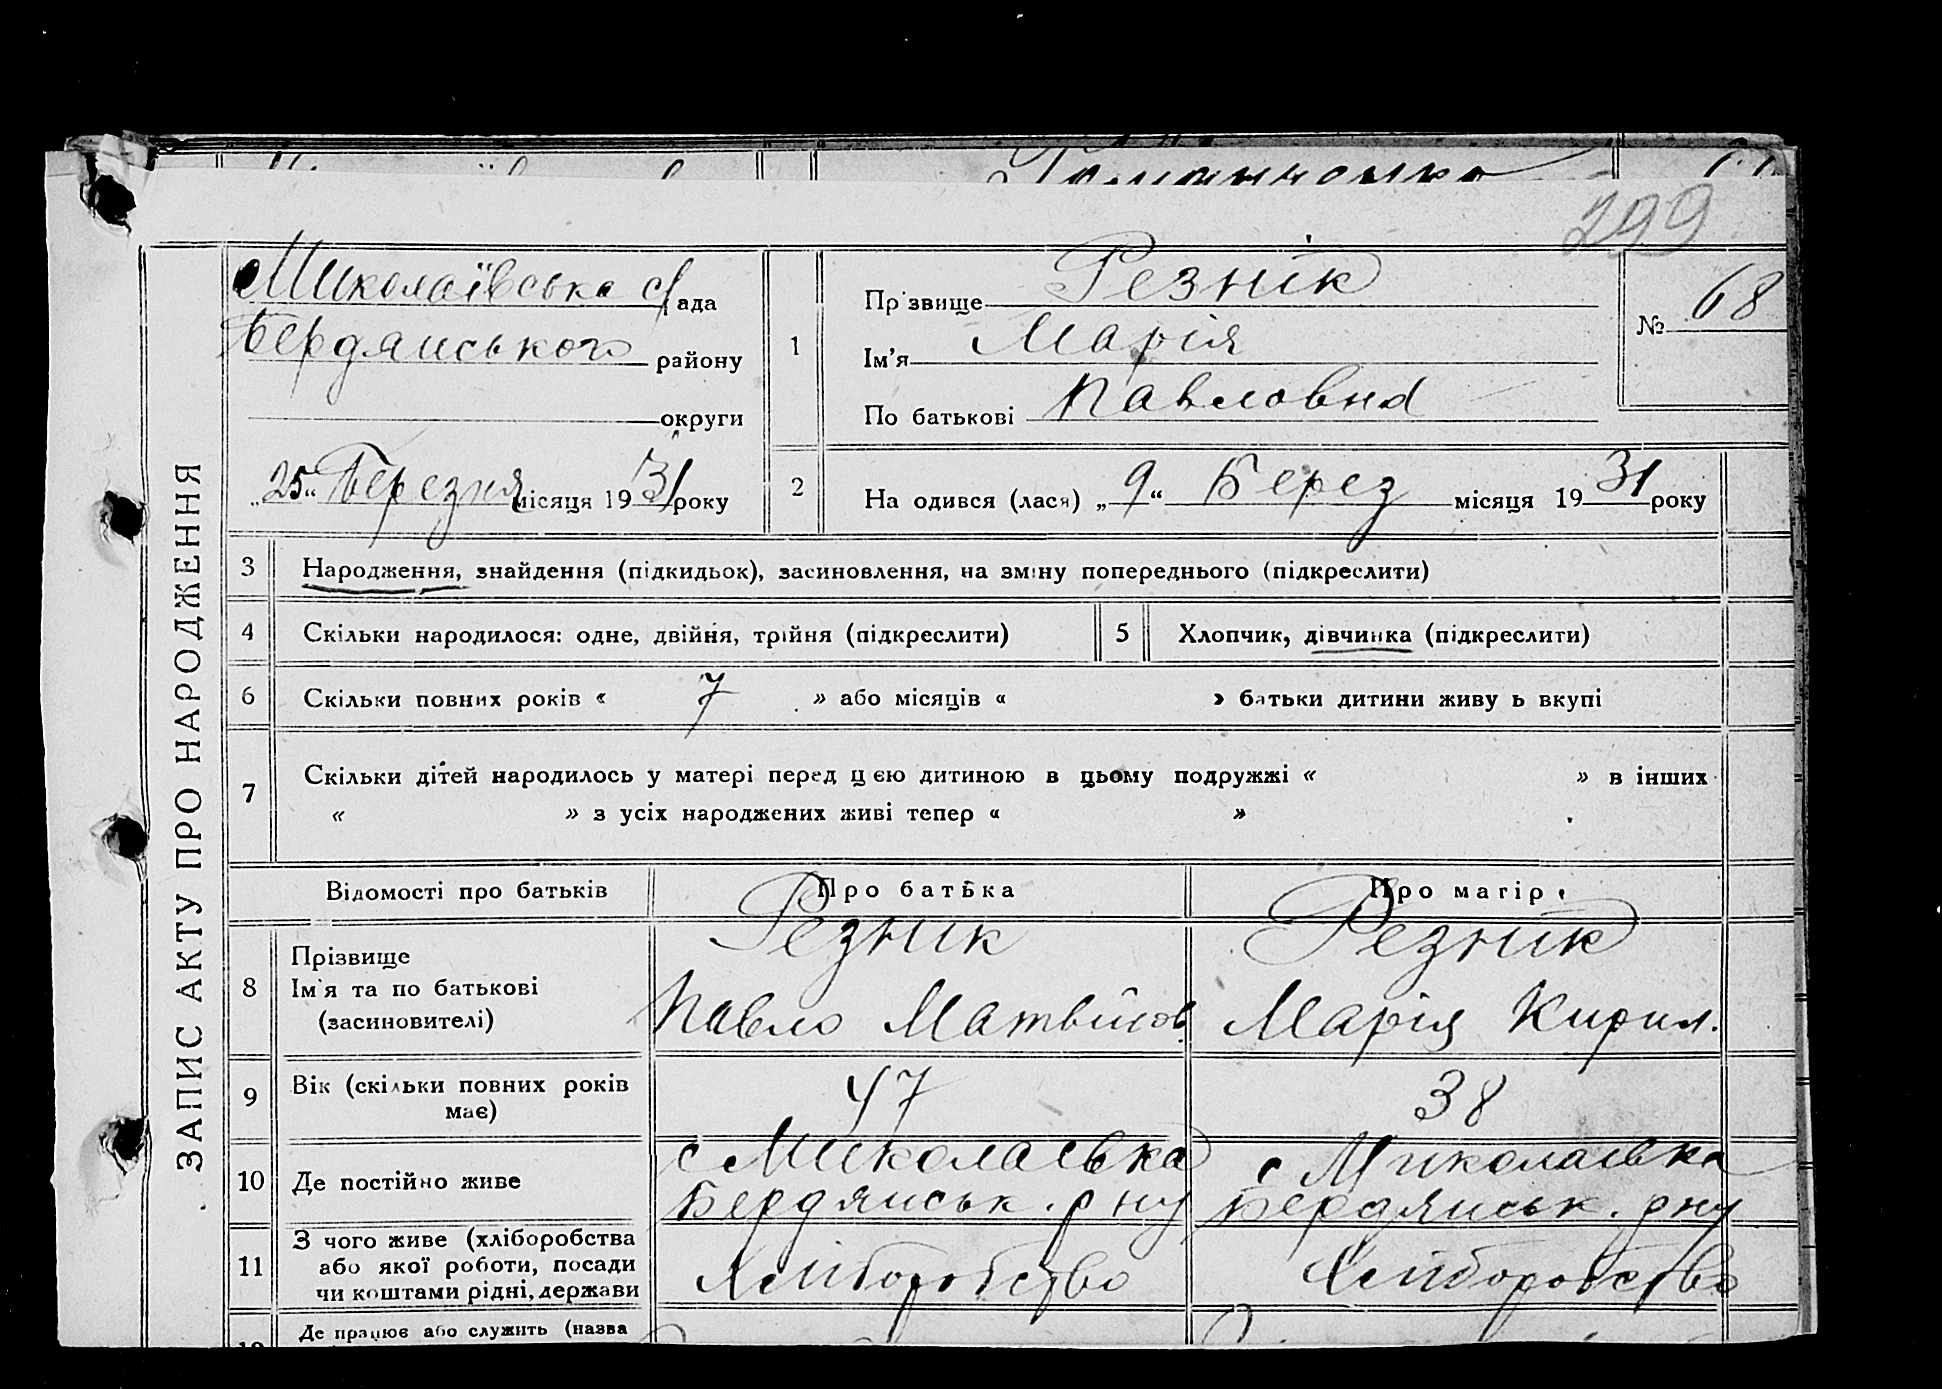 299
ЗАПИС АКТУ ПРО НАРОДЖЕННЯ
Миколаївська с/рада
Бердянського району
округи
„25“ Березня місяця 1931 року
1
Прізвище Резнік
Ім’я Марія
По батькові Павловна
№ 68
2
На одився (лася) „9“ Берез місяця 1931 року
3 Народження, знайдення (підкидьок), засиновлення, на зміну попереднього (підкреслити)
4 Скільки народилося: одне, двійня, трійня (підкреслити) 5 Хлопчик, дівчинка (підкреслити)
6 Скільки повних років « 7 » або місяців « » батьки дитини живу ь вкупі
7 Скільки дітей народилось у матері перед цією дитиною в цьому подружжі « » в інших
« » з усіх народжених живі тепер « »
Відомості про батьків Про батька Про матір
8 Прізвище
Ім'я та по батькові
(засиновителі)
Резник
Павло Матвійов
Резник
Марія Кирил.
9 Вік (скільки повних років
має)
47 38
10 Де постійно живе
с Миколаївка
Бердянськ. рну
с Миколаївка
Бердянськ. рну
11 З чого живе (хліборобства
або якої роботи, посади
чи коштами рідні, держави
Хліборобство Хліборобство
Де працює або служить (назва